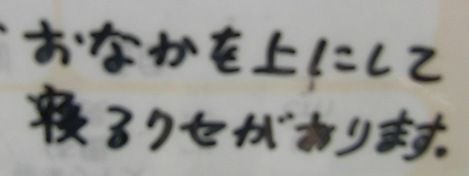 おなかを上にして
寝るクセがあります。